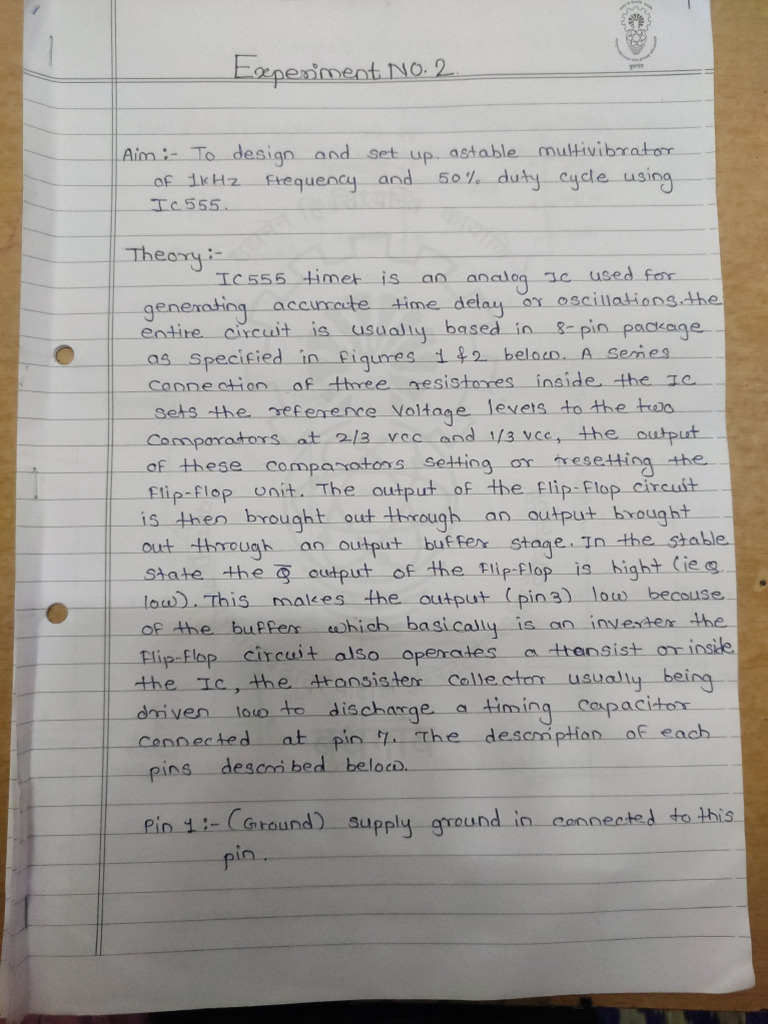 Experiment No. 2.
Aim :- To design and set up. astable multivibrator
of 1kHz frequency and 50% duty cycle using
Ic 555.
Theory :-
IC555 timer is an analog Ic used for
generating accurrate time delay or oscillations. the
entire circuit is usually based in 8-pin package
as specified in figures 1 & 2 below. A series
connection of three resistores inside the IC
sets the reference voltage levels to the two
comparators at 2/3 vcc and 1/3 vcc, the output
of these comparators setting or resetting the
flip-flop unit. The output of the flip-flop circuit
is then brought out through an output brought
out through an output buffer stage. In the stable
state the Q̅ output of the flip-flop is hight (ie Q
low). This makes the output (pin 3) low because
of the buffer which basically is an inverter the
flip-flop circuit also operates a transist or inside
the IC, the transister collector usually being
driven low to discharge a timing capacitor
connected at pin 7. The description of each
pins described below.
Pin 1 :- (Ground) supply ground in connected to this
pin.